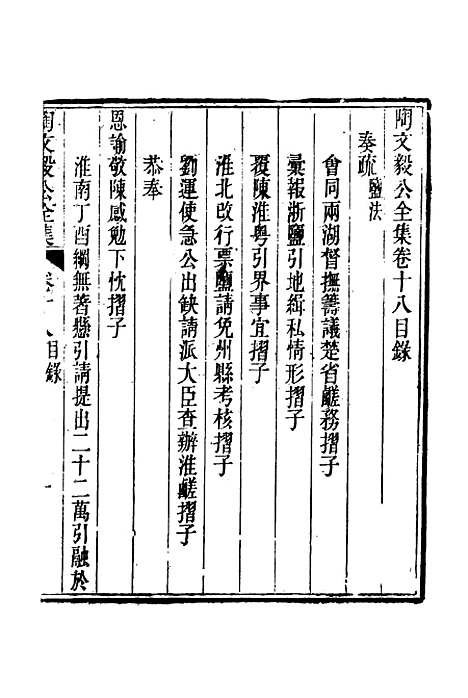 陶文毅公全集卷十八目錄
奏疏 鹽法
會同兩湖督撫籌議楚省鹺務摺子
彙報浙鹽引地緝私情形摺子
覆陳淮粤引界事宜摺子
淮北改行票鹽請免州縣考核摺子
劉運使急公出缺請派大臣查辦淮鹺摺子
恭奉
恩諭敬陳感勉下忱摺子
淮南丁酉綱無著懸引請提出二十二萬引融於
陶文毅公全集 卷十八目錄 一